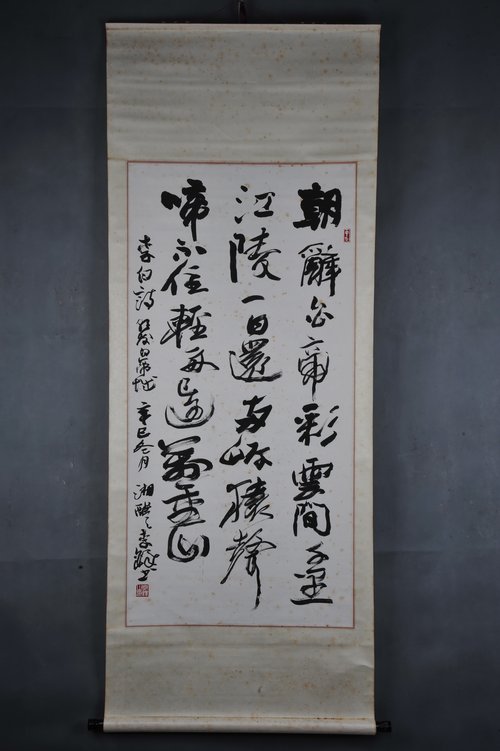 朝辭白帝彩雲間千里
江陵一日還兩岸猿聲
啼不住輕舟已過萬重山
李白詩 早發白帝城 辛巳冬月 湘醴李鐸书